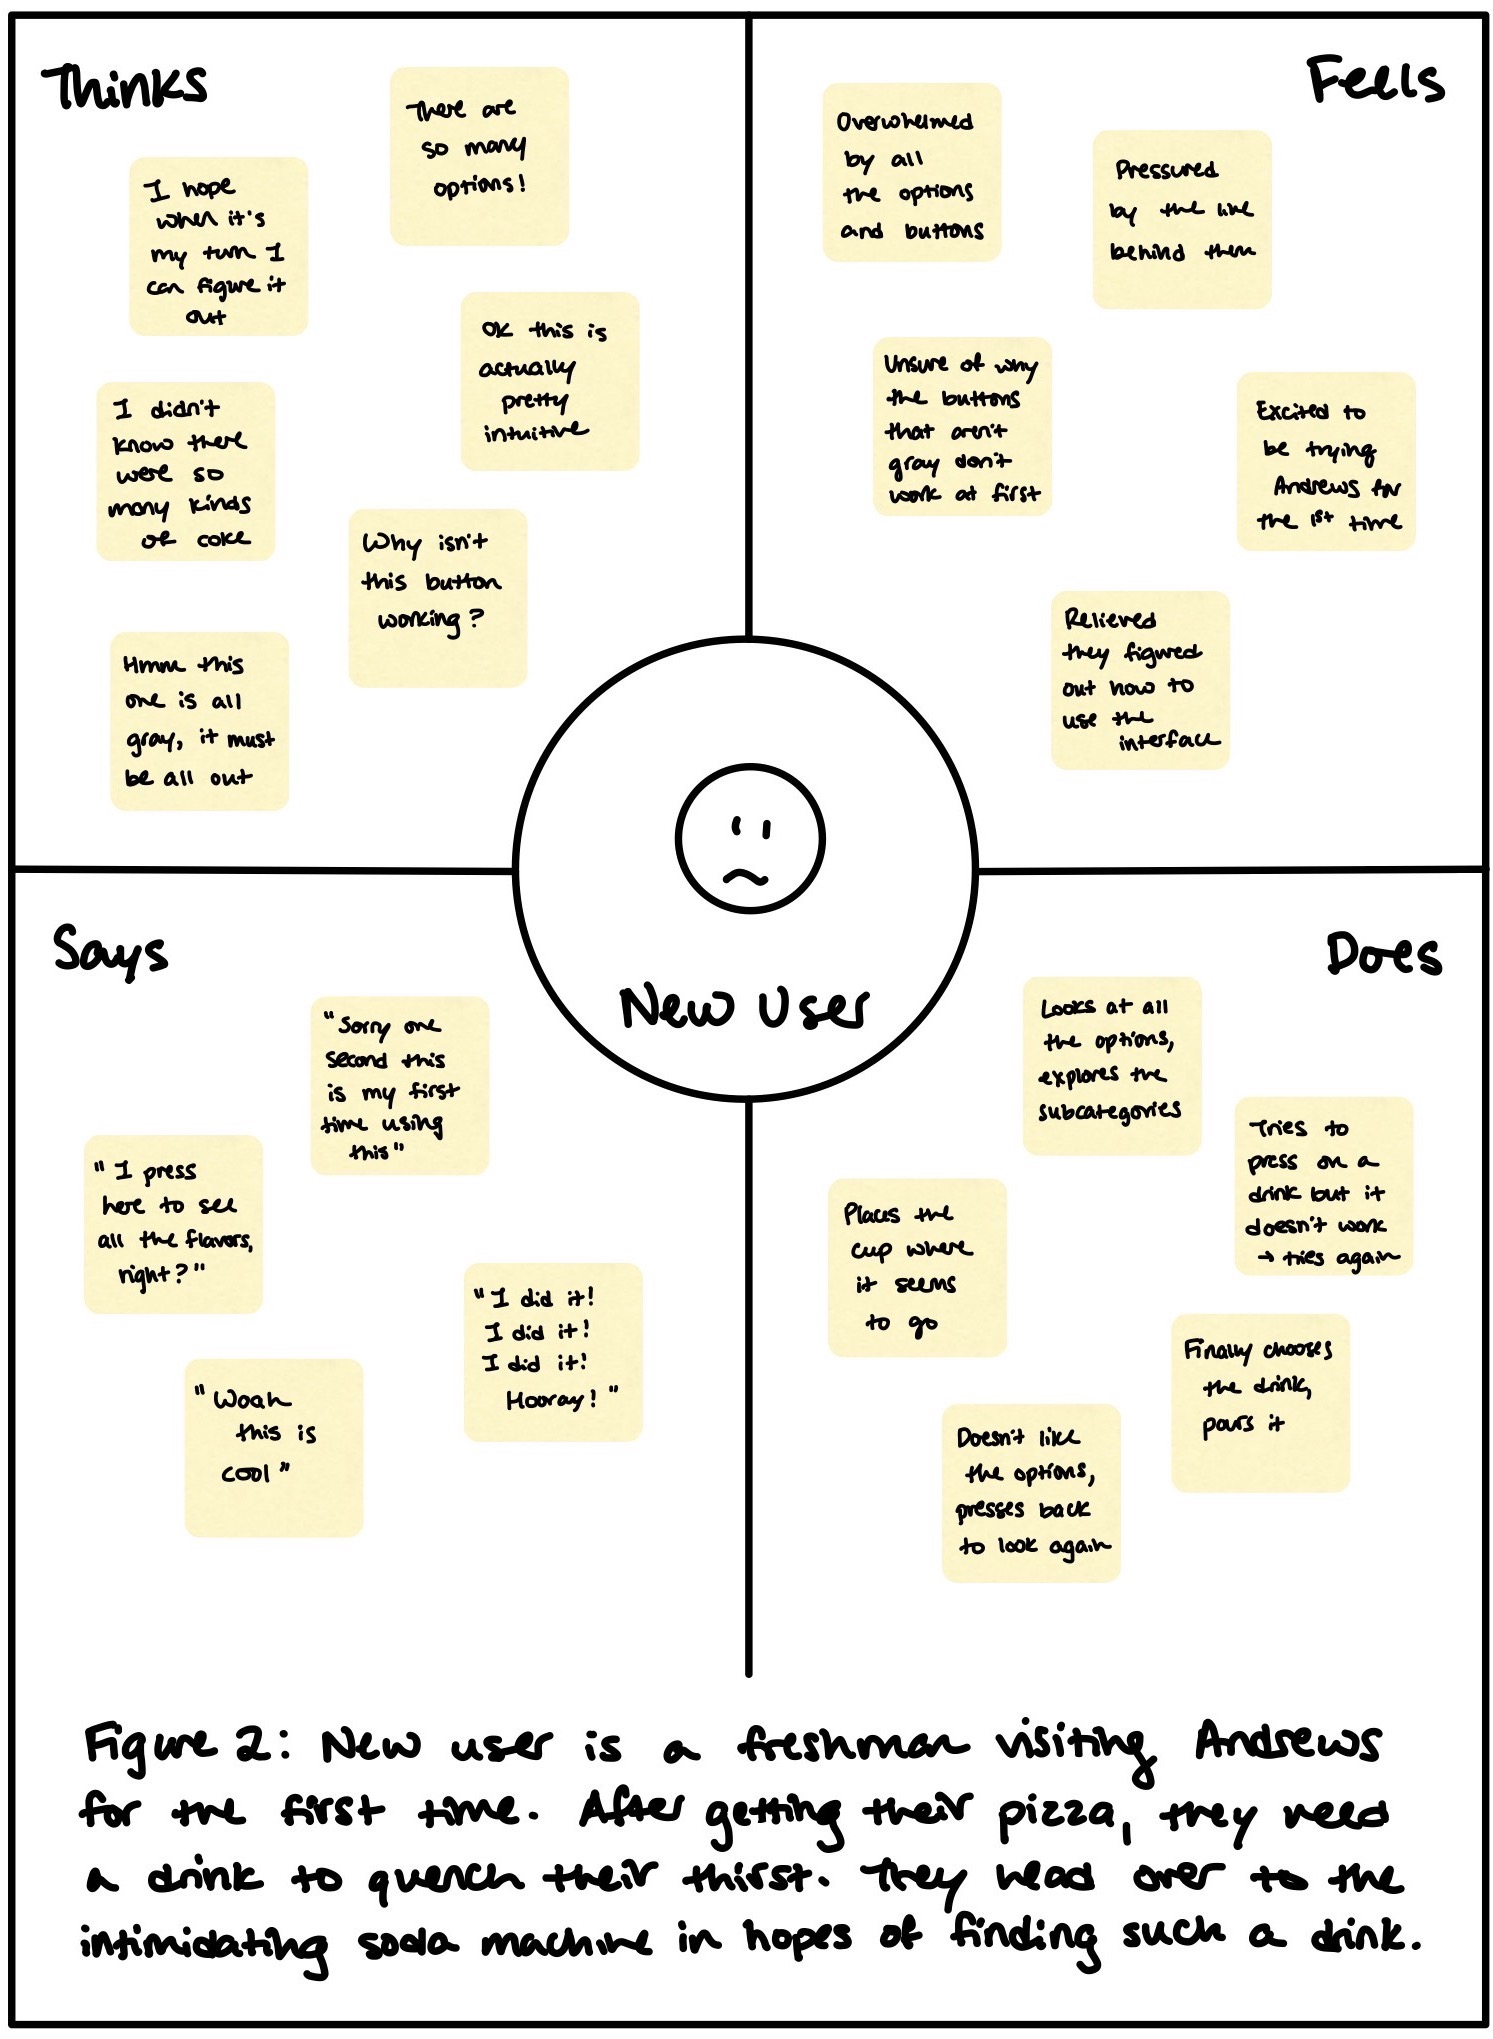 Thinks
There are
so many
options!
I hope
when it's
my turn I
can figure it
out
OK this is
actually
pretty
intuitive
I didn't
know there
were so
many kinds
of coke
Why isn't
this button
working?
Hmm this
one is all
gray, it must
be all out
Feels
Overwhelmed
by all
the options
and buttons
Pressured
by the line
behind them
Unsure of why
the buttons
that aren't
gray don't
work at first
Excited to
be trying
Andrews for
the 1st time
Relieved
they figured
out how to
use the
interface
New User
Says
"Sorry one
second this
is my first
time using
this"
"I press
here to see
all the flavors,
right?"
"I did it!
I did it!
I did it!
Hooray!"
"Woah
this is
cool"
Does
Looks at all
the options,
explores the
subcategories
Tries to
press on a
drink but it
doesn't work
→ tries again
Places the
cup where
it seems
to go
Finally chooses
the drink,
pours it
Doesn't like
the options,
presses back
to look again
Figure 2: New user is a freshman visiting Andrews
for the first time. After getting their pizza, they need
a drink to quench their thirst. They head over to the
intimidating soda machine in hopes of finding such a drink.